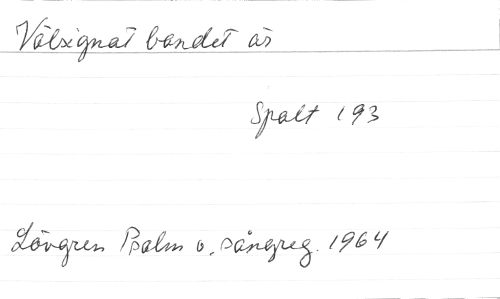 Välsignat bandet är
Spalt 193
Lövgren Psalm o. sångreg. 1964